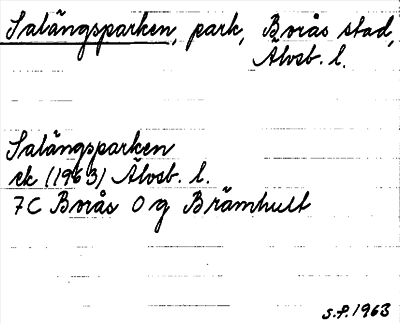 Salängsparken, park, Borås stad,
Älvsb. l.
Salängsparken
ek (1963) Älvsb. l.
7C Borås 0 g Brämhult
S.P. 1963